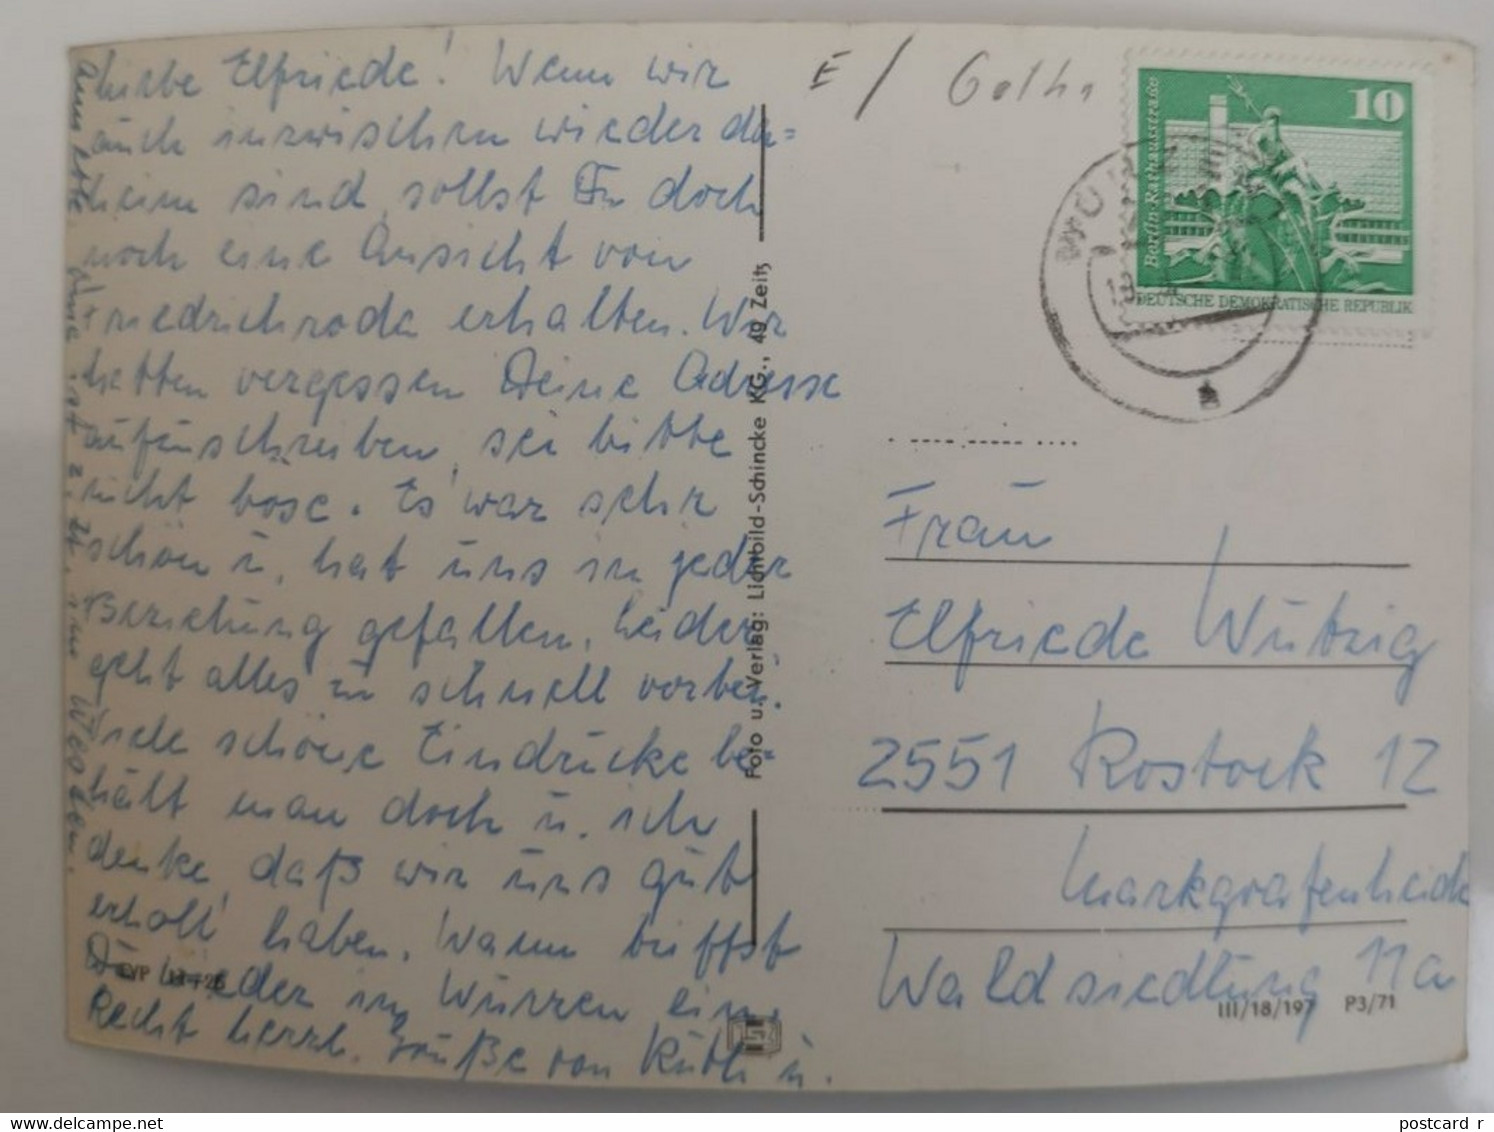 Liebe Elfriede! Wenn wir
auch inzwischen wieder da=
heim sind, sollst Du doch
noch eine Ansicht von
Friedrichroda erhalten. Wir
hatten vergessen Deine Adresse
aufzuschreiben, sei bitte
nicht böse. Es war sehr
schön u. hat uns in jeder
Beziehung gefallen. Leider
geht alles zu schnell vorbei.
Viele schöne Eindrücke be-
hält man doch u. ich
denke, daß wir uns gut
erholt haben. Wann triffst
Du wieder in Wurzen ein.
Recht herzl. Grüße von Ruth u.
Anna ist z. Zt. im Westen.
Foto u. Verlag: Lichtbild-Schincke KG., 49 Zeitz
E / Gotha
10
Berlin·Rathausstraße
DEUTSCHE DEMOKRATISCHE REPUBLIK
Frau
Elfriede Wutzig
2551 Rostock 12
Markgrafenheide
Waldsiedlung 11a
III/18/197 P3/71
postcard_r
www.delcampe.net